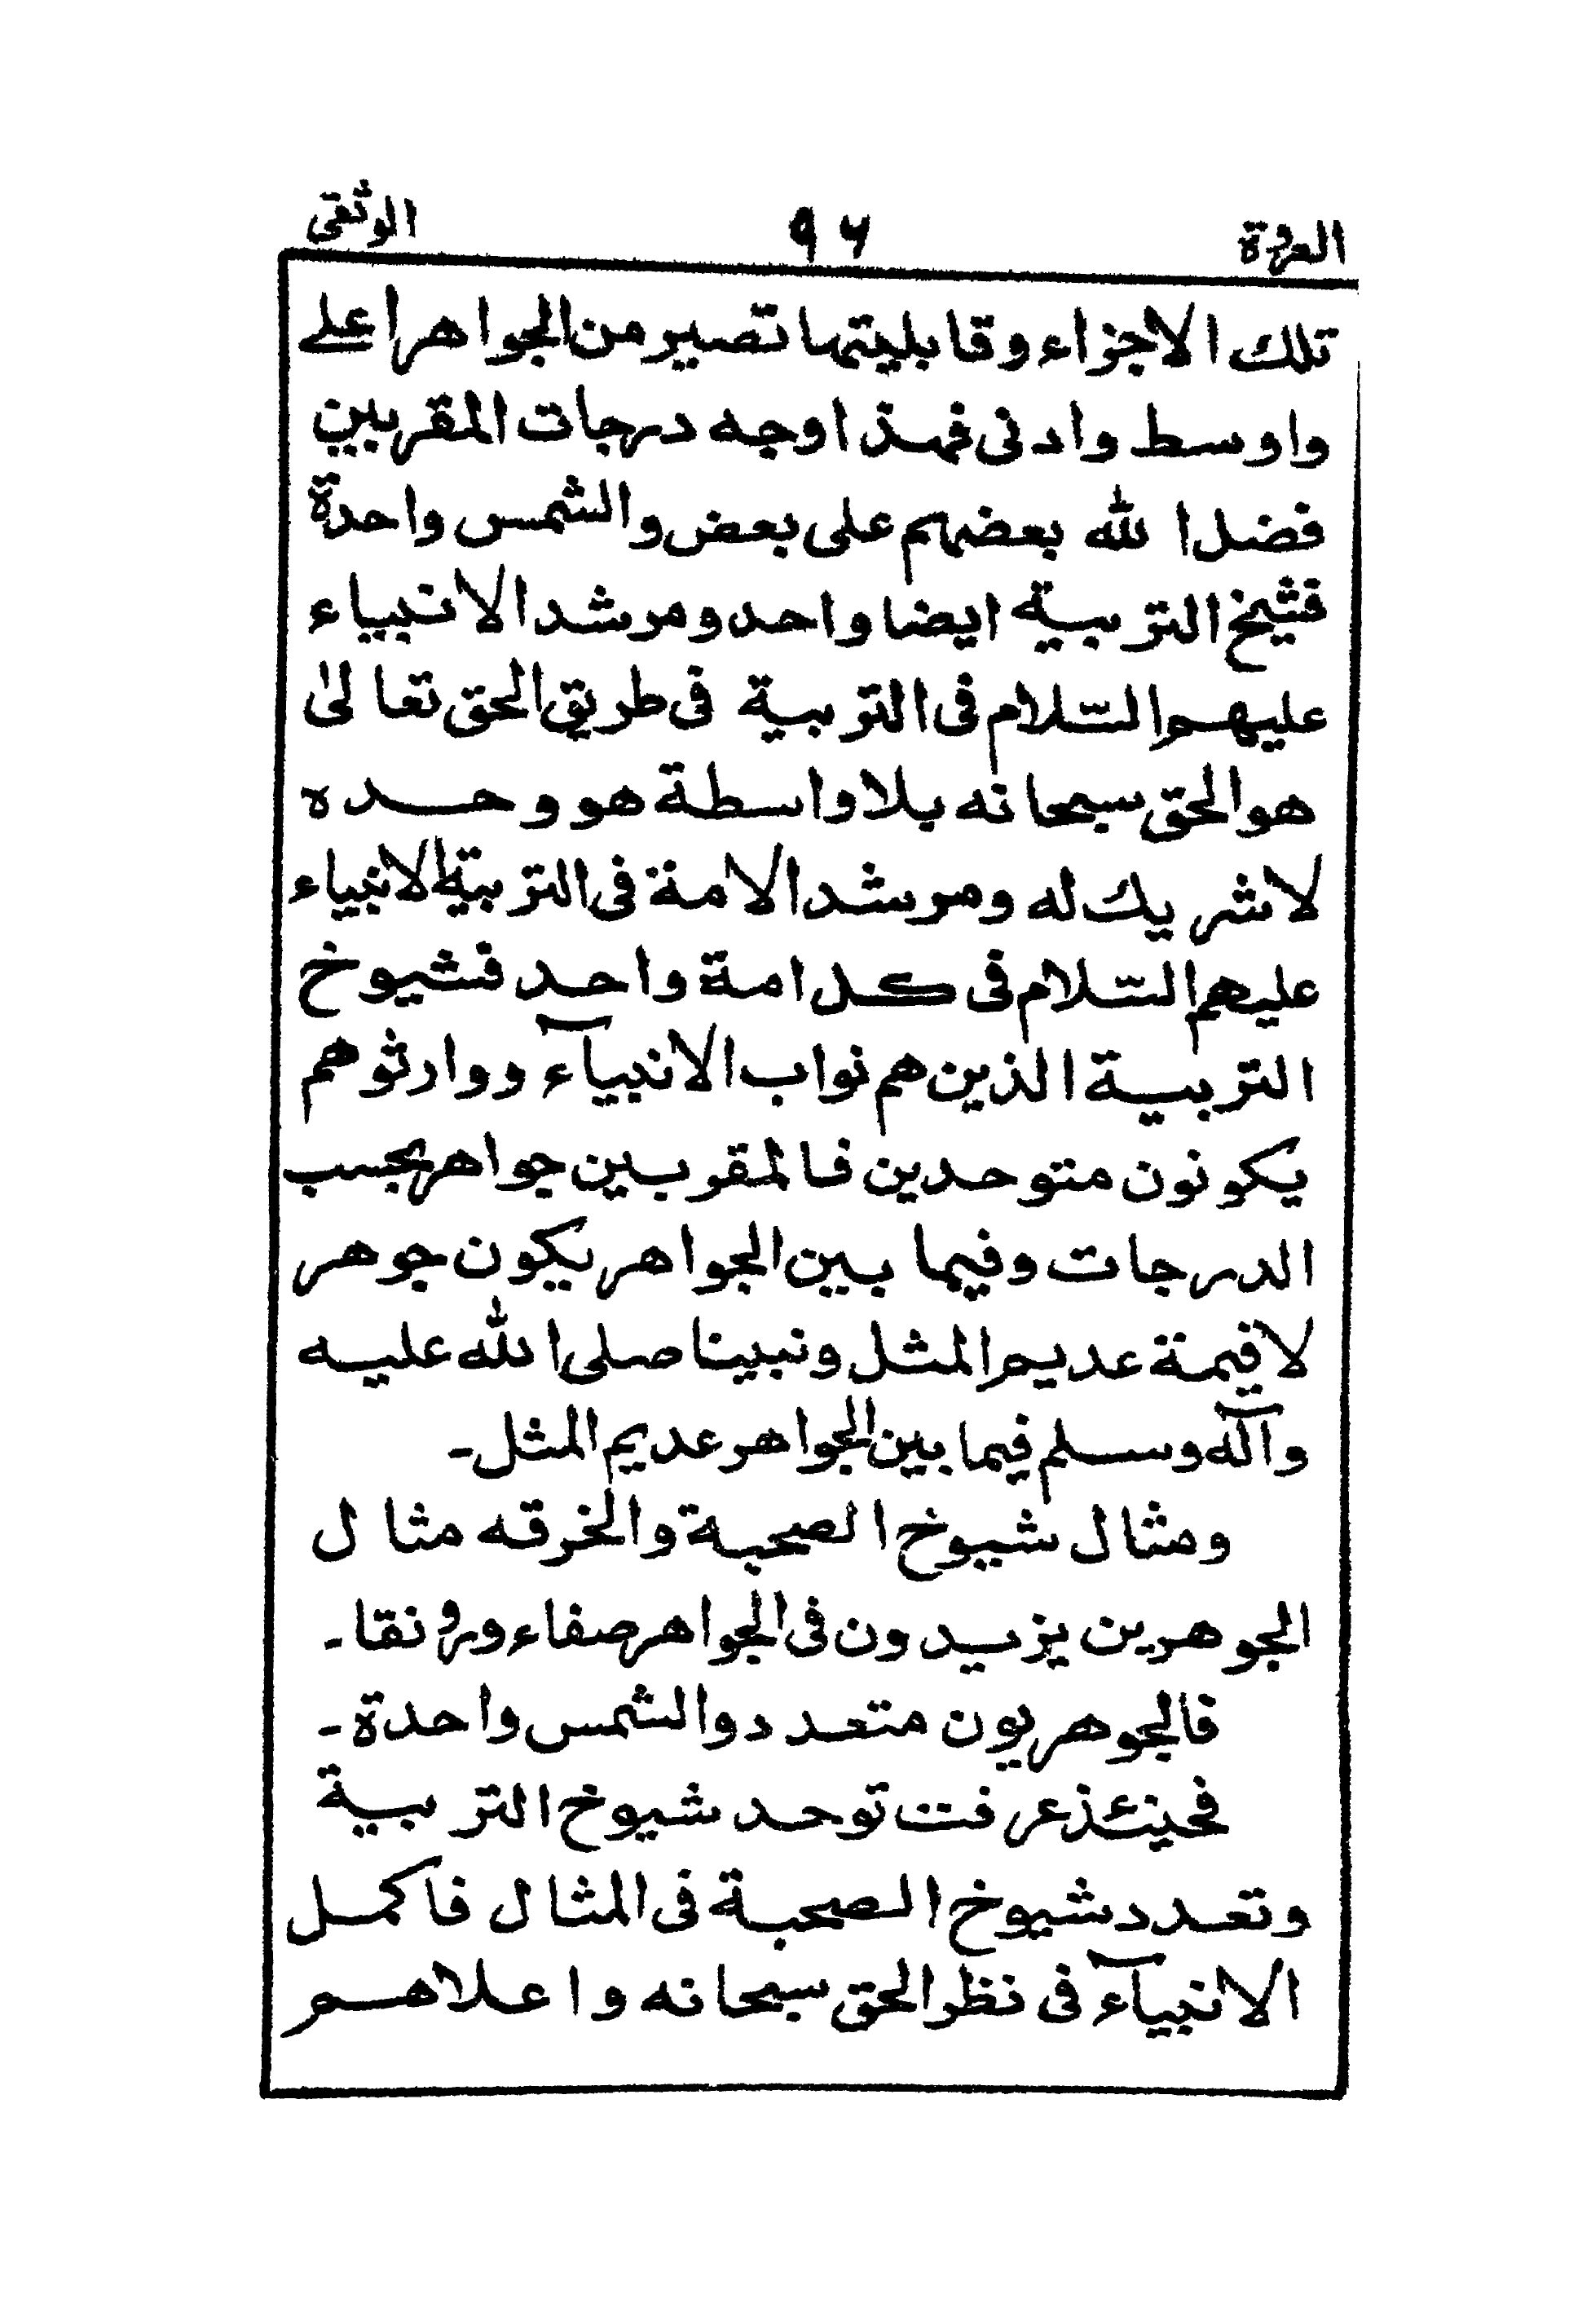 العروة ٩٤ الوثقى
تلك الاجزاء وقابليتها تصير من الجواهر اعلے
واوسط وادنى فمذ اوجه درجات المقربين
فضل الله بعضهم على بعض والشمس واحدة
فشيخ التربية ايضا واحد ومرشد الانبياء
عليهم السّلام فى التربية فى طريق الحق تعالىٰ
هو الحق سبحانه بلا واسطة هو وحده
لا شريك له ومرشد الامة فى التربية الانبياء
عليهم السّلام فى كل امة واحد فشيوخ
التربية الذين هم نواب الانبيآء ووارثوهم
يكونون متوحدين فالمقربين جواهر بحسب
الدرجات وفيما بين الجواهر يكون جوهر
لا قيمة عديم المثل ونبينا صلى الله عليه
وآله وسلم فيما بين الجواهر عديم المثل۔
ومثال شيوخ الصحبة والخرقه مثال
الجوهرين يزيدون فى الجواهر صفاء ورونقا۔
فالجوهريون متعدد والشمس واحدة۔
فحينئذ عرفت توحد شيوخ التربية
وتعدد شيوخ الصحبة فى المثال فاكمل
الانبيآء فى نظر الحق سبحانه واعلاهم